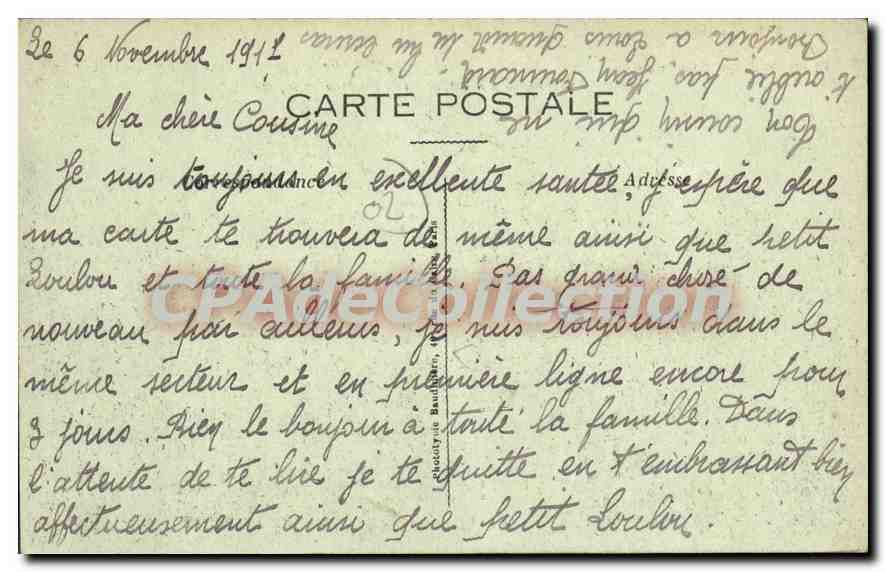 Le 6 Novembre 1917
CARTE POSTALE
Ma chère Cousine
Correspondance
Adresse
Je suis toujours en excellente santée, j'espère que
ma carte te trouvera de même ainsi que petit
Loulou et toute la famille. Pas grand chose de
nouveau par ailleurs, je suis toujours dans le
même secteur et en première ligne encore pour
3 jours. Bien le bonjour à toute la famille. Dans
l'attente de te lire je te quitte en t'embrassant bien
affectueusement ainsi que petit Loulou.
Ton cousin qui ne
t'oublie pas Jean
Bonjour a Louis quand tu lui
02
Phototypie Baudinière, Paris
CPAdeCollection